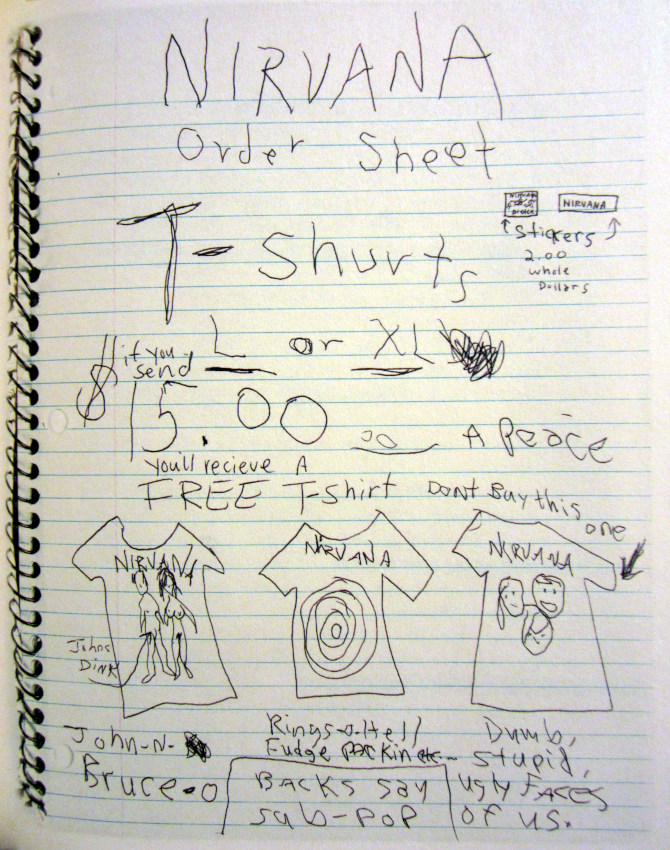 NIRVANA
Order Sheet
NIRVANA
NIRVANA
T-Shurts
Stickers
2.00
whole
Dollars
if you send
L or XL
$15.00
00
A Peace
you'll recieve A
FREE T-shirt
DONT Buy this one
NIRVANA
NIRVANA
NIRVANA
Johns
DINK
John-N-
Bruce-o
Rings-o-Hell
Fudge PACKIN
Dumb,
stupid,
ugly FACES
of us.
BACKS say
sub-pop